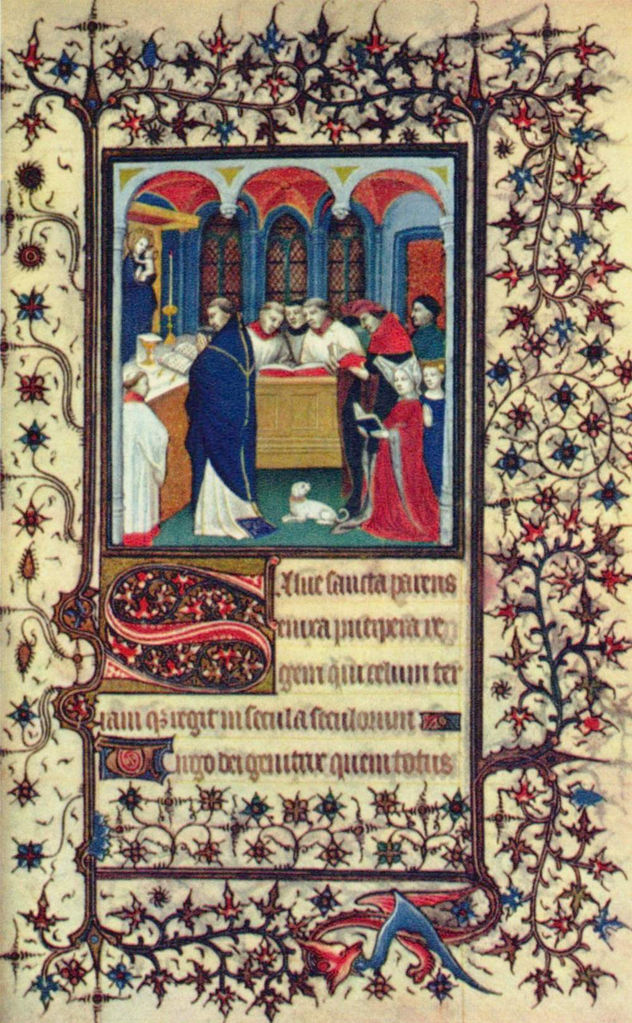 Salue sancta parens
enixa puerpera re
gem qui celum ter
ram qz regit in secula seculorum
Uirgo dei genitrix quem totus